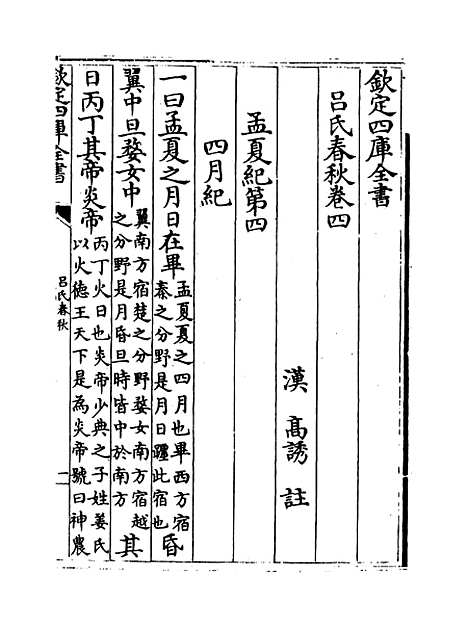 欽定四庫全書
呂氏春秋卷四
漢 高誘 註
孟夏紀第四
四月紀
一曰孟夏之月日在畢孟夏夏之四月也畢西方宿秦之分野是月日躔此宿也昏
翼中旦婺女中翼南方宿楚之分野婺女南方宿越之分野是月昏旦時皆中於南方其
日丙丁其帝炎帝丙丁火日也炎帝少典之子姓姜氏以火德王天下是為炎帝號曰神農
欽定四庫全書
呂氏春秋